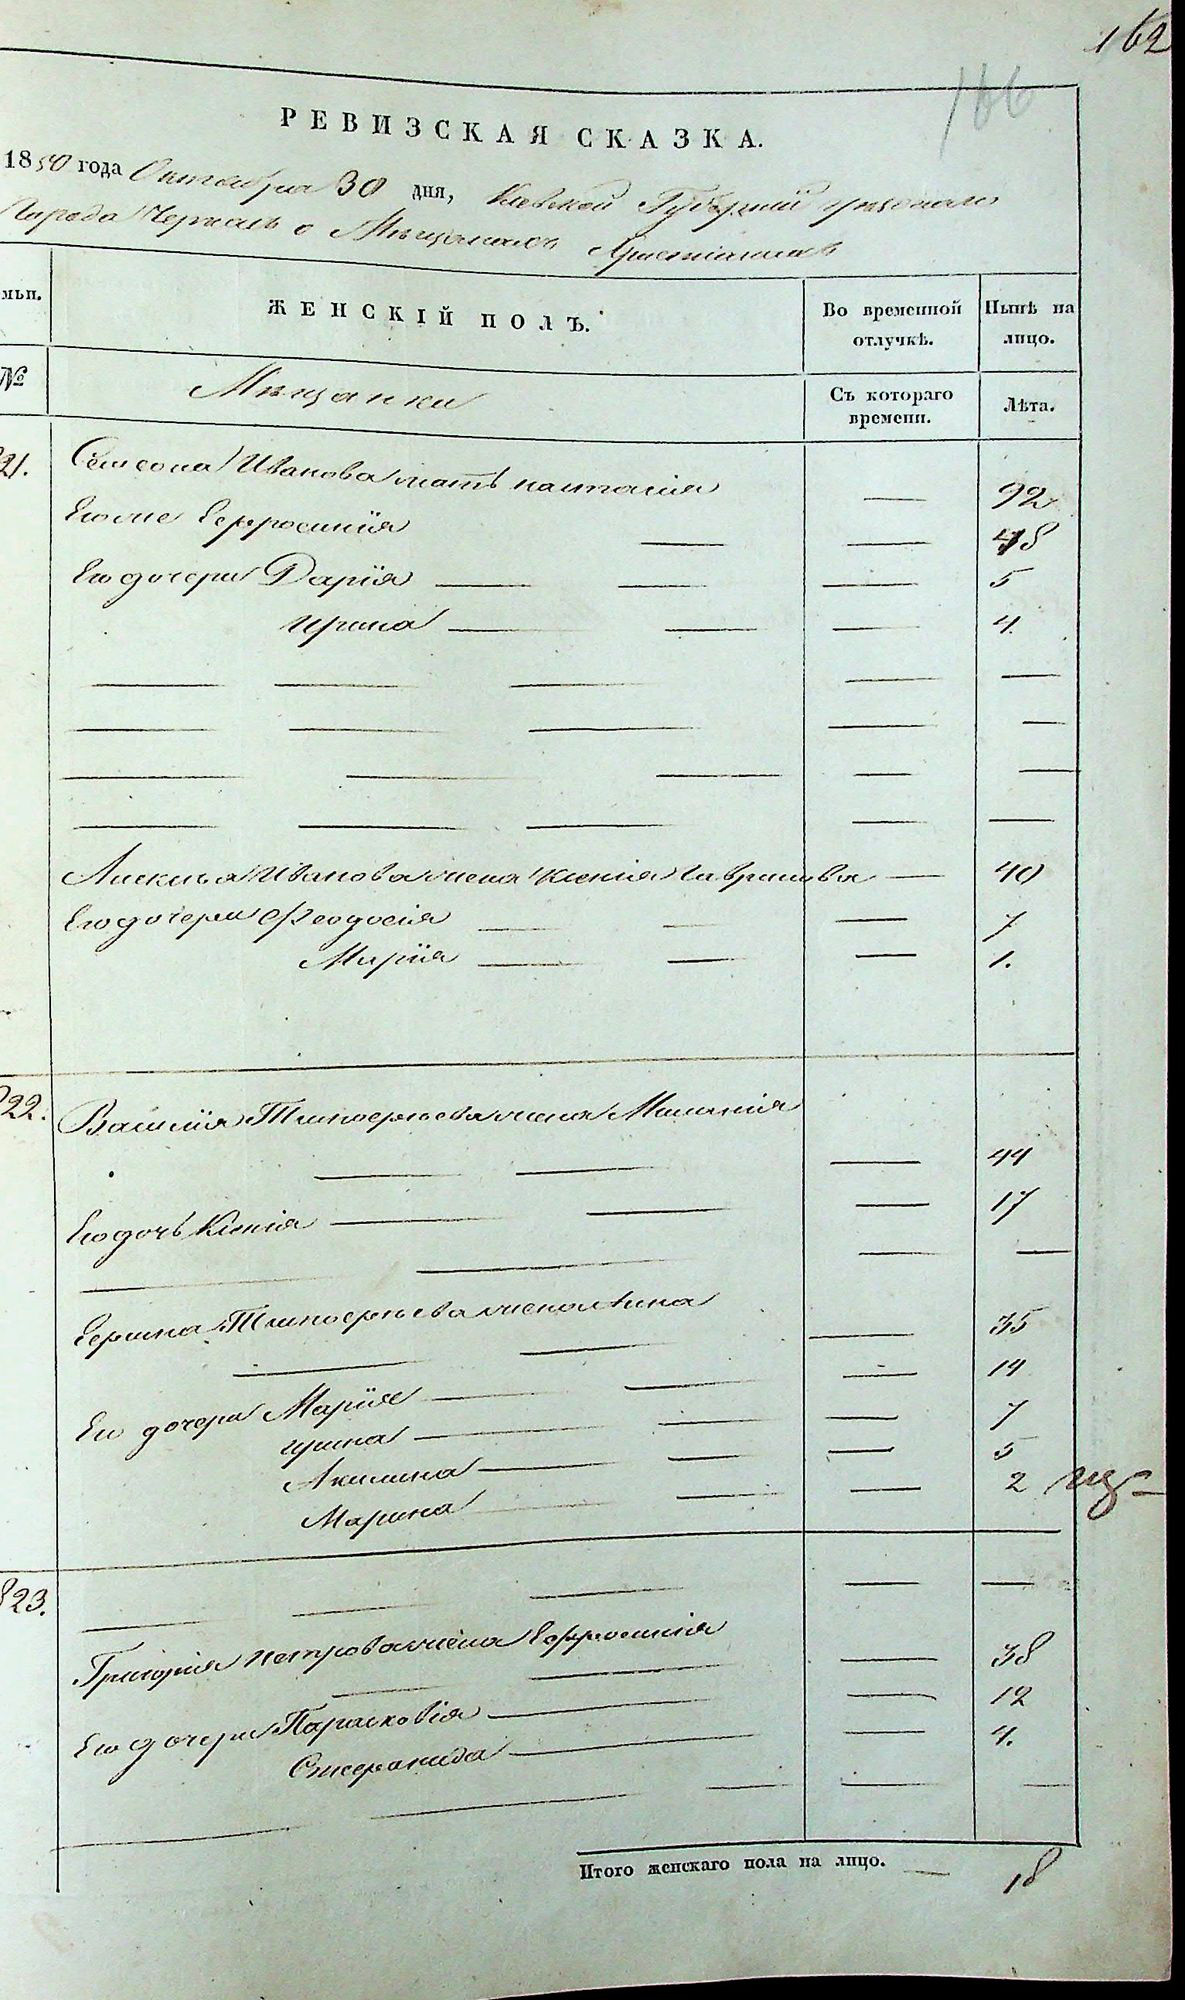 162
166
РЕВИЗСКАЯ СКАЗКА.
1850 года Октября 30 дня, Кіевской Губерніи уезднаго
Города Черкасъ о Мѣщанахъ Христіанахъ
мьи.
ЖЕНСКІЙ ПОЛЪ.
Во временной отлучкѣ.
Нынѣ на лицо.
№
Мѣщанки
Съ котораго времени.
Лѣта.
21. Семена Иванова мать — 92
Его же Ефросинія — — 48
Его дочери Дарія — — — 5
Ирина — — — 4.
— — — — —
— — — — —
— — — — —
— — — — —
Алексѣя Иванова жена Ксенія Гаврилова — 40
Его дочери Феодосія — — — 7
Марія — — — 1.
22. Василія Тимофеева жена Меланія
— — — 44
Его дочь Ксенія — — — 17
— — — —
Тимофеева жена Анна
— — — 35
Его дочери Марія — — — 14
Ирина — — — 7
Акилина — — — 5
Марина — — — 2
823. — — — — —
Григорія Петрова жена Ефросинія
— — — 38
Его дочери Парасковія — — 12
— — 4.
— — — — —
Итого женскаго пола на лицо. — 18